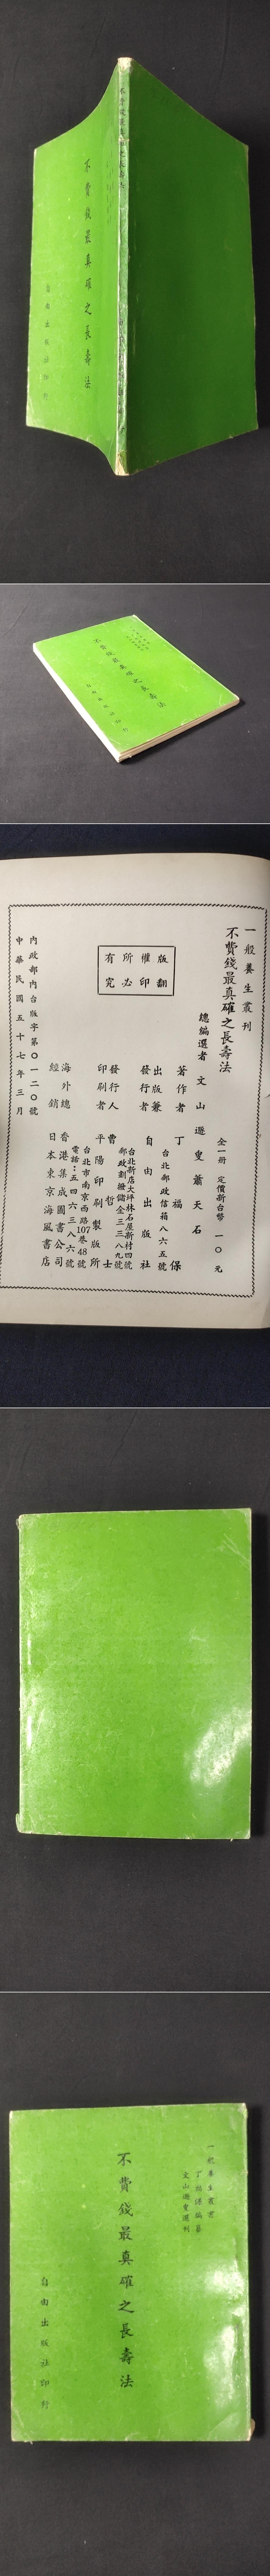 不費錢最真確之長壽法
不費錢最真確之長壽法
自由出版社印行
不費錢最真確之長壽法
自由出版社印行
一般養生叢刊
不費錢最真確之長壽法
全一冊 定價新台幣 一〇元
總編選者 文山遯叟蕭天石
著作者 丁福保
出版兼發行者 自由出版社
台北郵政信箱八六五號
台北新店大坪林石屋新村四號
郵政劃撥儲金三三八九號
發行人 曹哲士
印刷者 平陽印刷製版所
台北市南京西路107巷48號
電話：五四六三八六號
海外總經銷 香港集成圖書公司
日本東京海風書店
內政部內台版字第〇一二〇號
中華民國五十七年三月
版權所有
翻印必究
一般養生叢書
丁福保編纂
文山遯叟選刊
不費錢最真確之長壽法
自由出版社印行